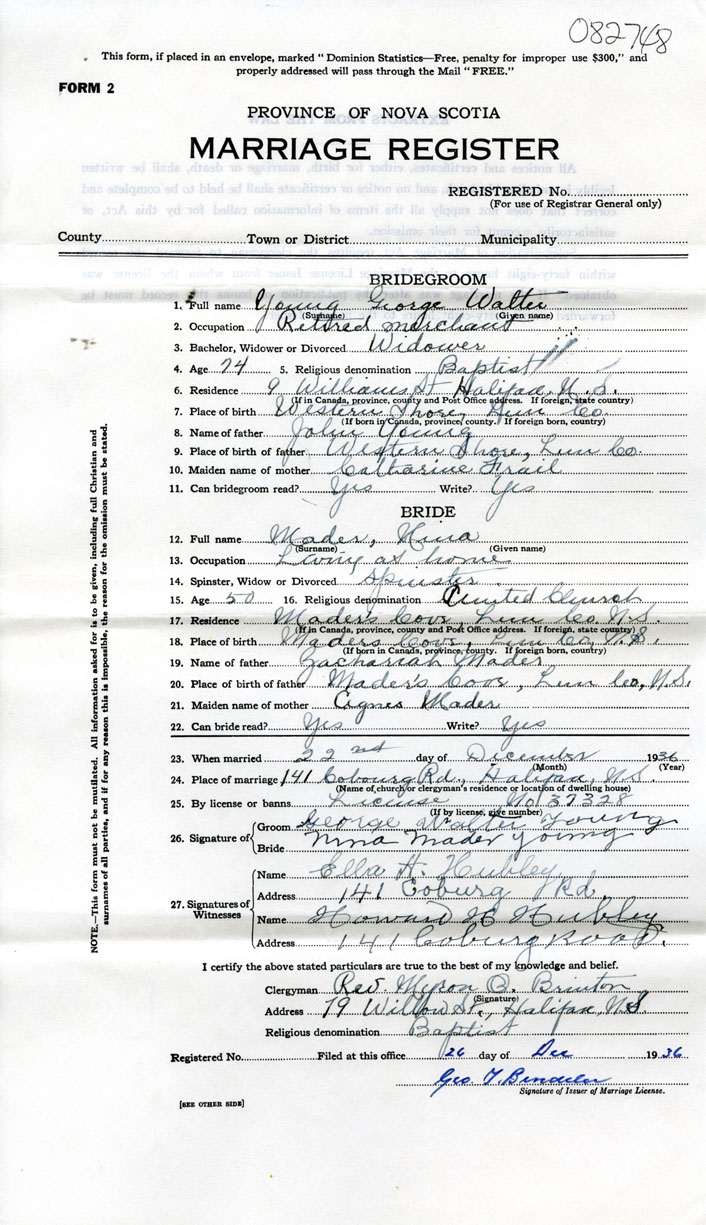 082748
This form, if placed in an envelope, marked "Dominion Statistics—Free, penalty for improper use $300," and
properly addressed will pass through the Mail "FREE."
FORM 2
PROVINCE OF NOVA SCOTIA
MARRIAGE REGISTER
REGISTERED No.
(For use of Registrar General only)
County Town or District Municipality
BRIDEGROOM
1. Full name Young George Walter
(Surname) (Given name)
2. Occupation Retired merchant
3. Bachelor, Widower or Divorced Widower
4. Age 74 5. Religious denomination Baptist
6. Residence 9 Williams St Halifax, N.S.
(If in Canada, province, county and Post Office address. If foreign, state country)
7. Place of birth Western Shore, Lun Co.
(If born in Canada, province, county. If foreign born, country)
8. Name of father John Young
9. Place of birth of father Western Shore, Lun Co.
10. Maiden name of mother Catharine
11. Can bridegroom read? Yes Write? Yes
BRIDE
12. Full name Mader, Nina
(Surname) (Given name)
13. Occupation Living at home
14. Spinster, Widow or Divorced Spinster
15. Age 50 16. Religious denomination United Church
17. Residence Mader's Cove, Lun Co. N.S.
(If in Canada, province, county and Post Office address. If foreign, state country)
18. Place of birth Maders Cove, Lun Co, N.S.
(If born in Canada, province, county. If foreign born, country)
19. Name of father Zachariah Mader
20. Place of birth of father Mader's Cove, Lun Co, N.S.
21. Maiden name of mother Agnes Mader
22. Can bride read? Yes Write? Yes
23. When married 22nd day of December 1936
(Month) (Year)
24. Place of marriage 141 Cobourg Rd., Halifax, N.S.
(Name of church or clergyman's residence or location of dwelling house)
25. By license or banns License No 37328
(If by license, give number)
26. Signature of Groom George Walter Young
Bride Nina Mader Young
27. Signatures of Witnesses
Name Ella H. Hubley
Address 141 Coburg Rd.
Name Howard H Hubley
Address 141 Coburg Road.
I certify the above stated particulars are true to the best of my knowledge and belief.
Clergyman Rev. Myron O. Brinton
(Signature)
Address 79 Willow St., Halifax, N.S
Religious denomination Baptist
Registered No. Filed at this office 26 day of Dec 1936
Geo. T.
Signature of Issuer of Marriage License.
[SEE OTHER SIDE]
NOTE.—This form must not be mutilated. All information asked for is to be given, including full Christian and
surnames of all parties, and if for any reason this is impossible, the reason for the omission must be stated.